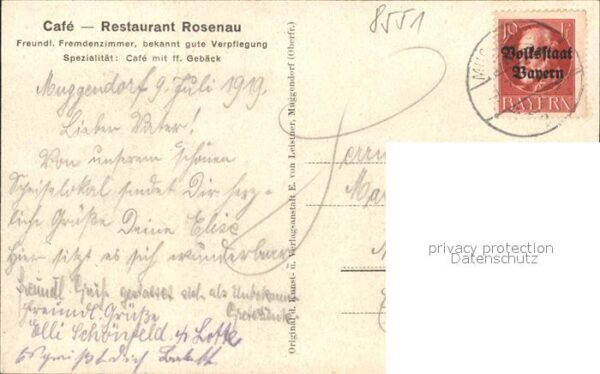 Café — Restaurant Rosenau
Freundl. Fremdenzimmer, bekannt gute Verpflegung
Spezialität: Café mit ff. Gebäck
8551
10 Pf
Volksstaat
Bayern
BAYERN
Muggendorf 9. Juli 1919.
Lieber Vater!
Von unserem schönen
Speiselokal sendet Dir herz-
liche Grüße Deine Elise
Hier sitzt es sich wunderbar
Freundl. Grüße sich als
Freundl. Grüße
Elli Schönfeld Lotte
Es grüßt Dich
Original d. Kunst- u. Verlagsanstalt E. von Leistner, Muggendorf (Oberfr.)
Herrn
privacy protection
Datenschutz